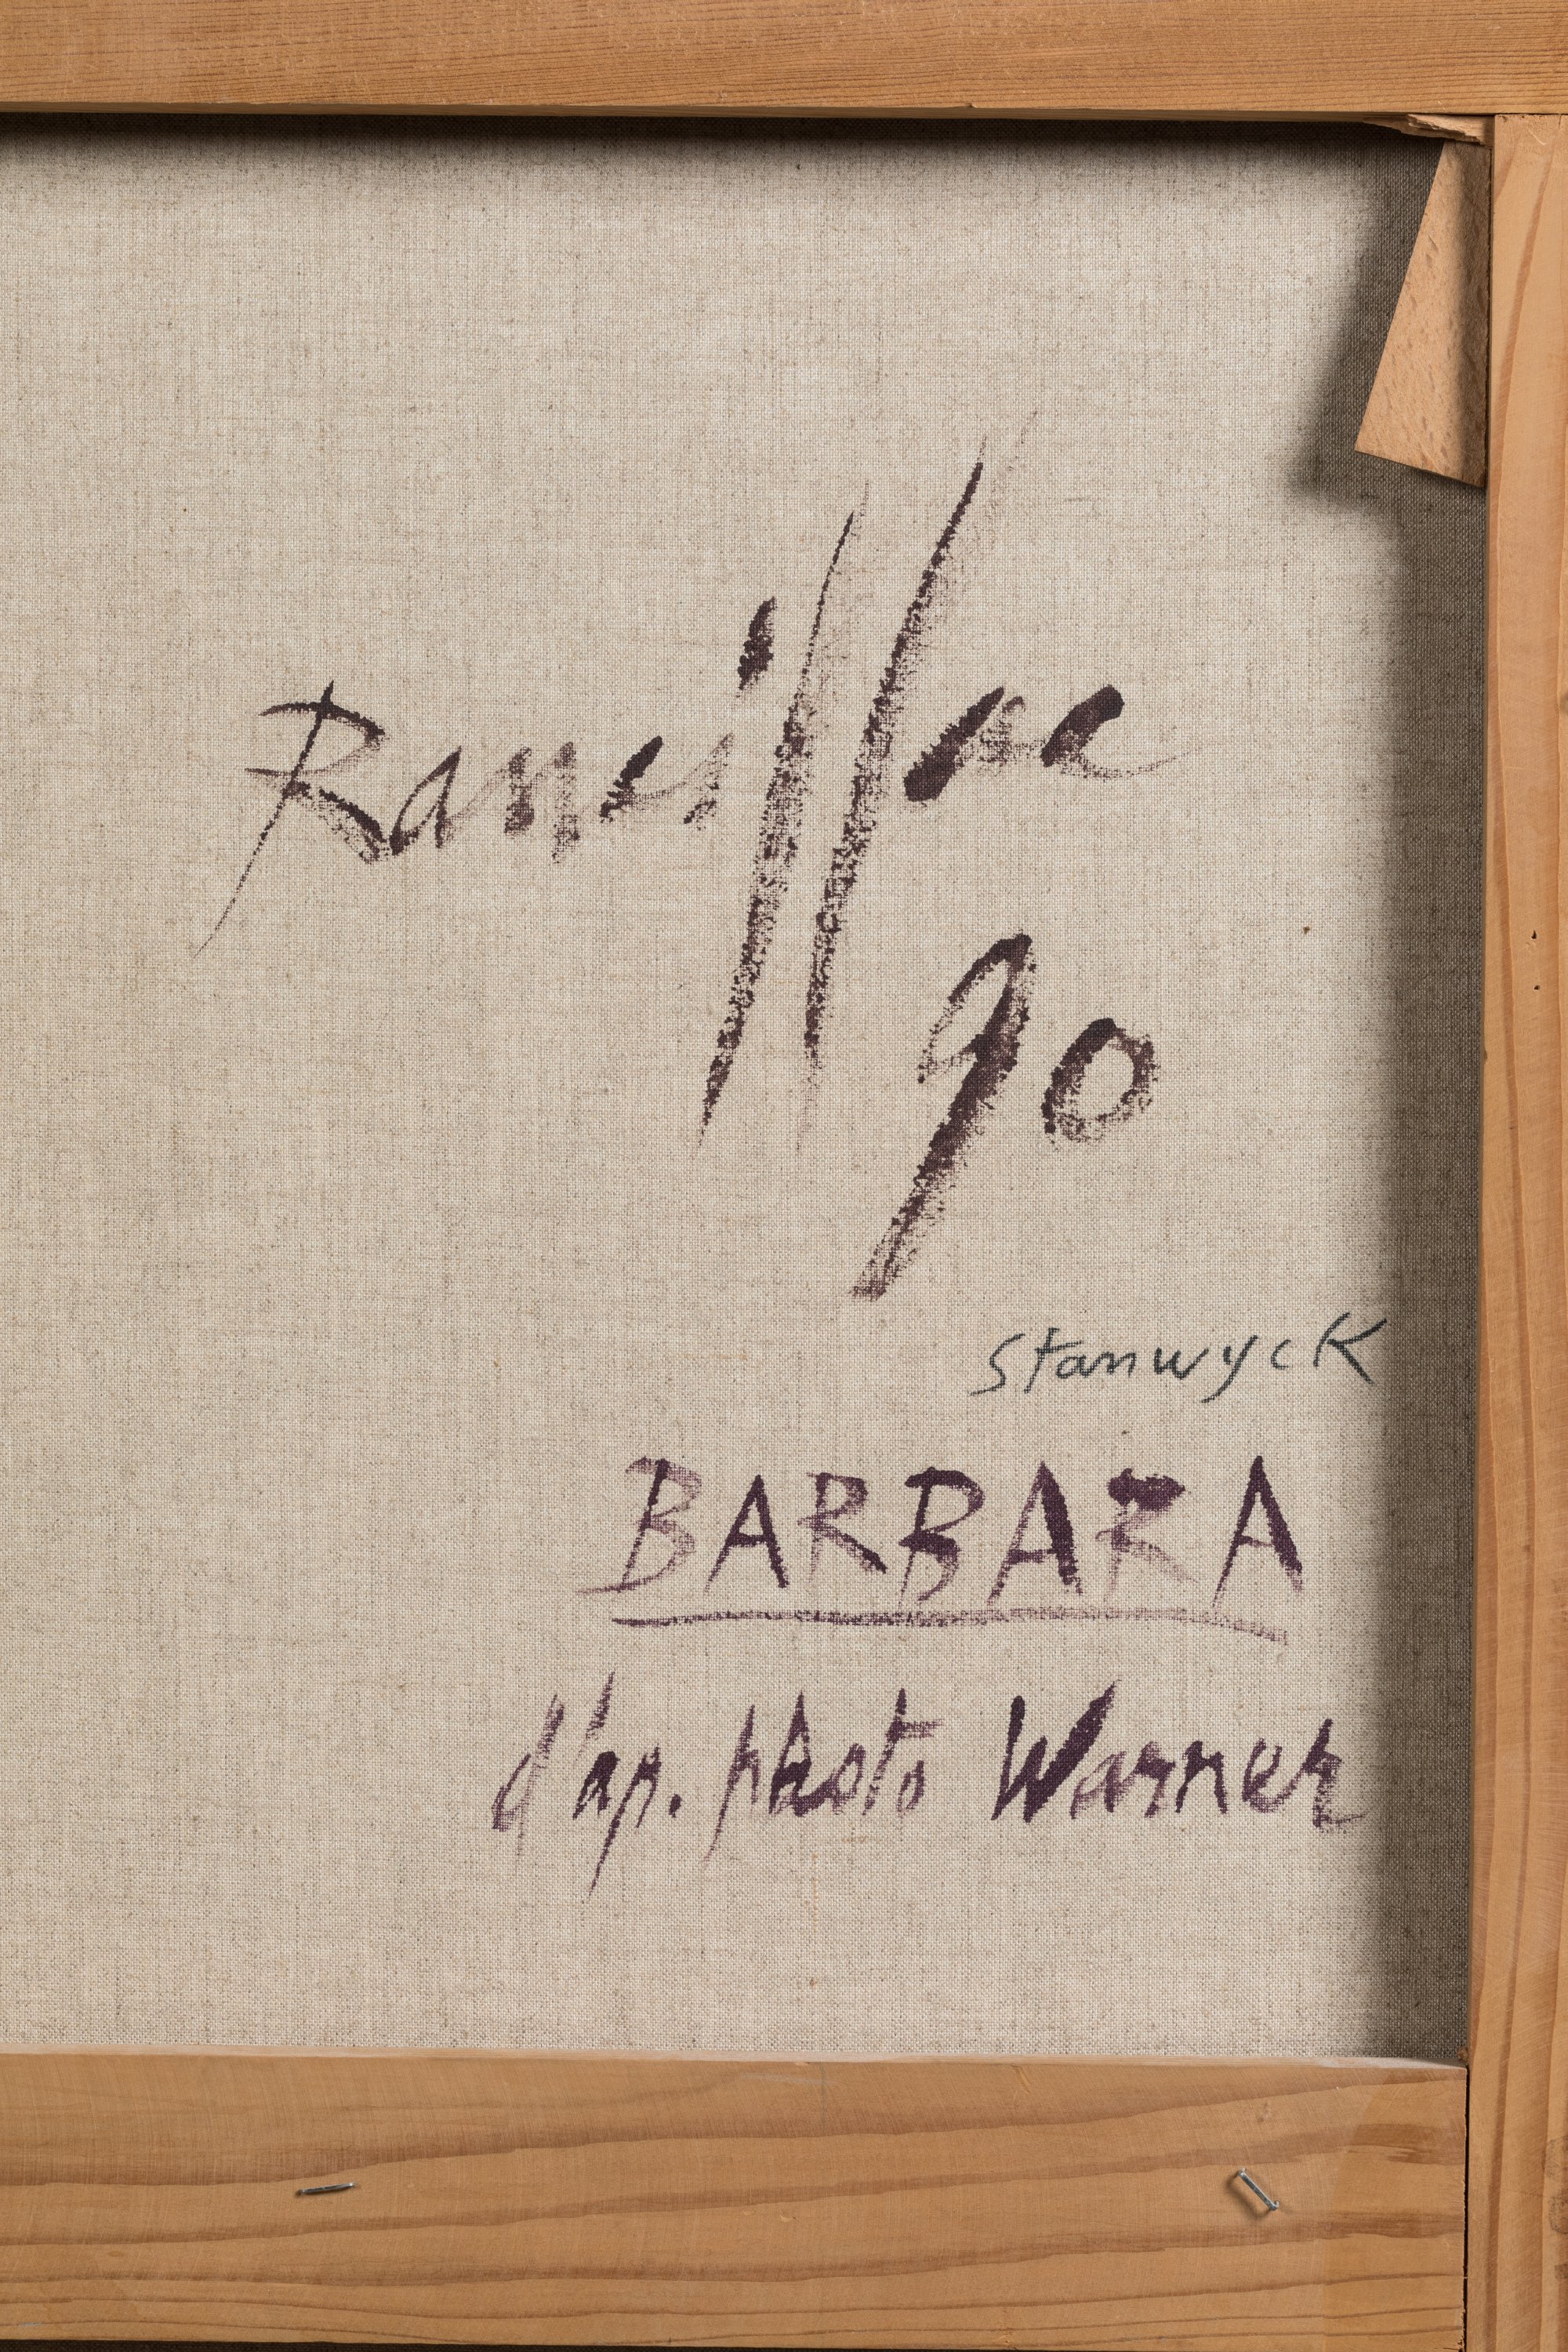 Rancillac
90
Stanwyck
BARBARA
d'ap. photo Warner